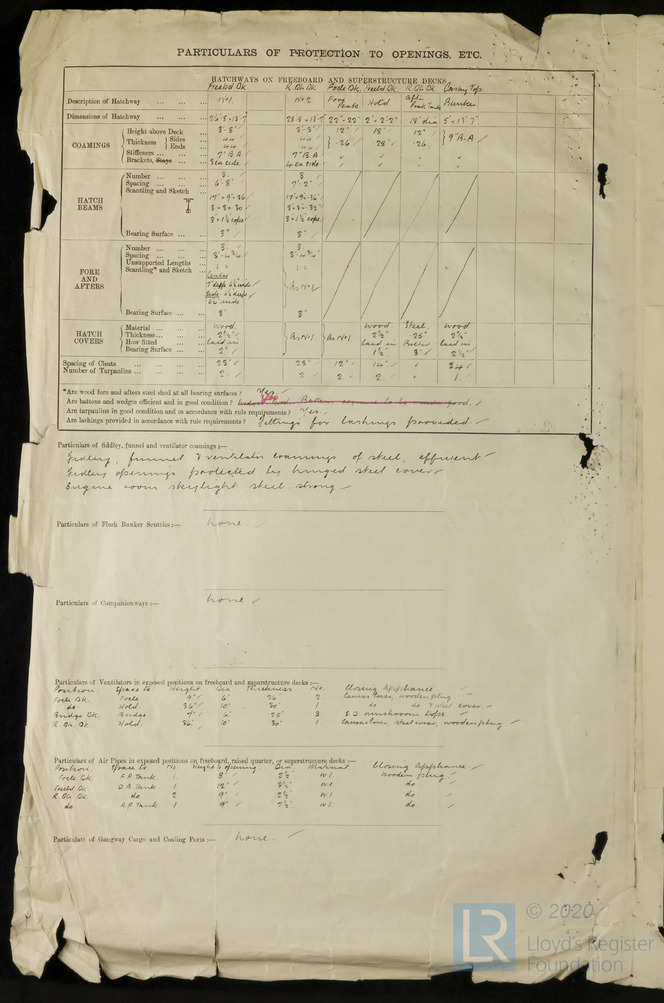 PARTICULARS OF PROTECTION TO OPENINGS, ETC.
HATCHWAYS ON FREEBOARD AND SUPERSTRUCTURE DECKS
Freebd Dk R. Qtr Dk Focle Dk. Freebd Dk R. Qtr Dk Casing Top
Description of Hatchway ... ... ... No 1. No 2 Fore Peak Hold After Peak Tank Bunker
Dimensions of Hatchway ... ... ... 22" × 22" 2' × 2'-2" 18" dia
COAMINGS
Height above Deck ... 3'-3" 12" 18" 12" 9" B.A
Thickness Sides .44 .44 .26 .28 .26
Ends .44 .44
Stiffeners ... ... ... 7" B.A. 7" B.A
Brackets, Stays ... ... 3 ea side 4 ea side
HATCH BEAMS
Number ... ... ... 3 3
Spacing ... ... ... 6'-8" 7'-2"
Scantling and Sketch
Bearing Surface ... ... 3" 3"
FORE AND AFTERS
Number ... ... ... 3 3
Spacing ... ... ...
Unsupported Lengths
Scantling* and Sketch As No 1
Bearing Surface ... ... 3" 3"
HATCH COVERS
Material ... ... ... Wood. As No 1 As No 1 Wood Steel Wood.
Thickness ... ... ... 2½" 2½" .25" 2½"
How fitted ... ... laid in laid in laid in
Bearing Surface ... 2" 1½" 3" 2½"
Spacing of Cleats ... ... ... 23" 23" 12" 14" 24"
Number of Tarpaulins ... ... ... 2. 2 2. 2. 1.
*Are wood fore and afters steel shod at all bearing surfaces? Yes.
Are battens and wedges efficient and in good condition? Yes Wedges good. Battens required to be made good.
Are tarpaulins in good condition and in accordance with rule requirements? Yes.
Are lashings provided in accordance with rule requirements? Fittings for lashings provided
Particulars of fiddley, funnel and ventilator coamings:—
Fidley, funnel & ventilator coamings of steel, efficient.
Fidley openings protected by hinged steel cover
Engine room skylight steel. strong
Particulars of Flush Bunker Scuttles:— None
Particulars of Companionways:— None
Particulars of Ventilators in exposed positions on freeboard and superstructure decks:—
Position. Space to. Height Dia Thickness No Closing appliance
Focle Dk. Focle 9" 6" 26 2 Canvas cover, wooden plug
do Hold 36" 10" 30" 1 do do & steel cover
Bridge Dk. Bridge 6" 25" 3 S.D. mushroom tops.
R. Qtr. Dk Hold. 36" 10" 30" 1 Canvas cover, steel cover, wooden plug
Particulars of Air Pipes in exposed positions on freeboard, raised quarter, or superstructure decks:—
Position. Space to No. Height to opening Dia Material Closing appliance
Focle Dk. F.P. Tank 1 8" 2½" W.I. Wooden plug
Freebd Dk D.B. Tank 1 12" W.I do
R. Qtr. Dk. do 2 9" 2½" W.I do
do. A.P. Tank 1 9" 2½" W.I do
Particulars of Gangway Cargo and Coaling Ports:— None
LR
© 2020
Lloyd's Register
Foundation